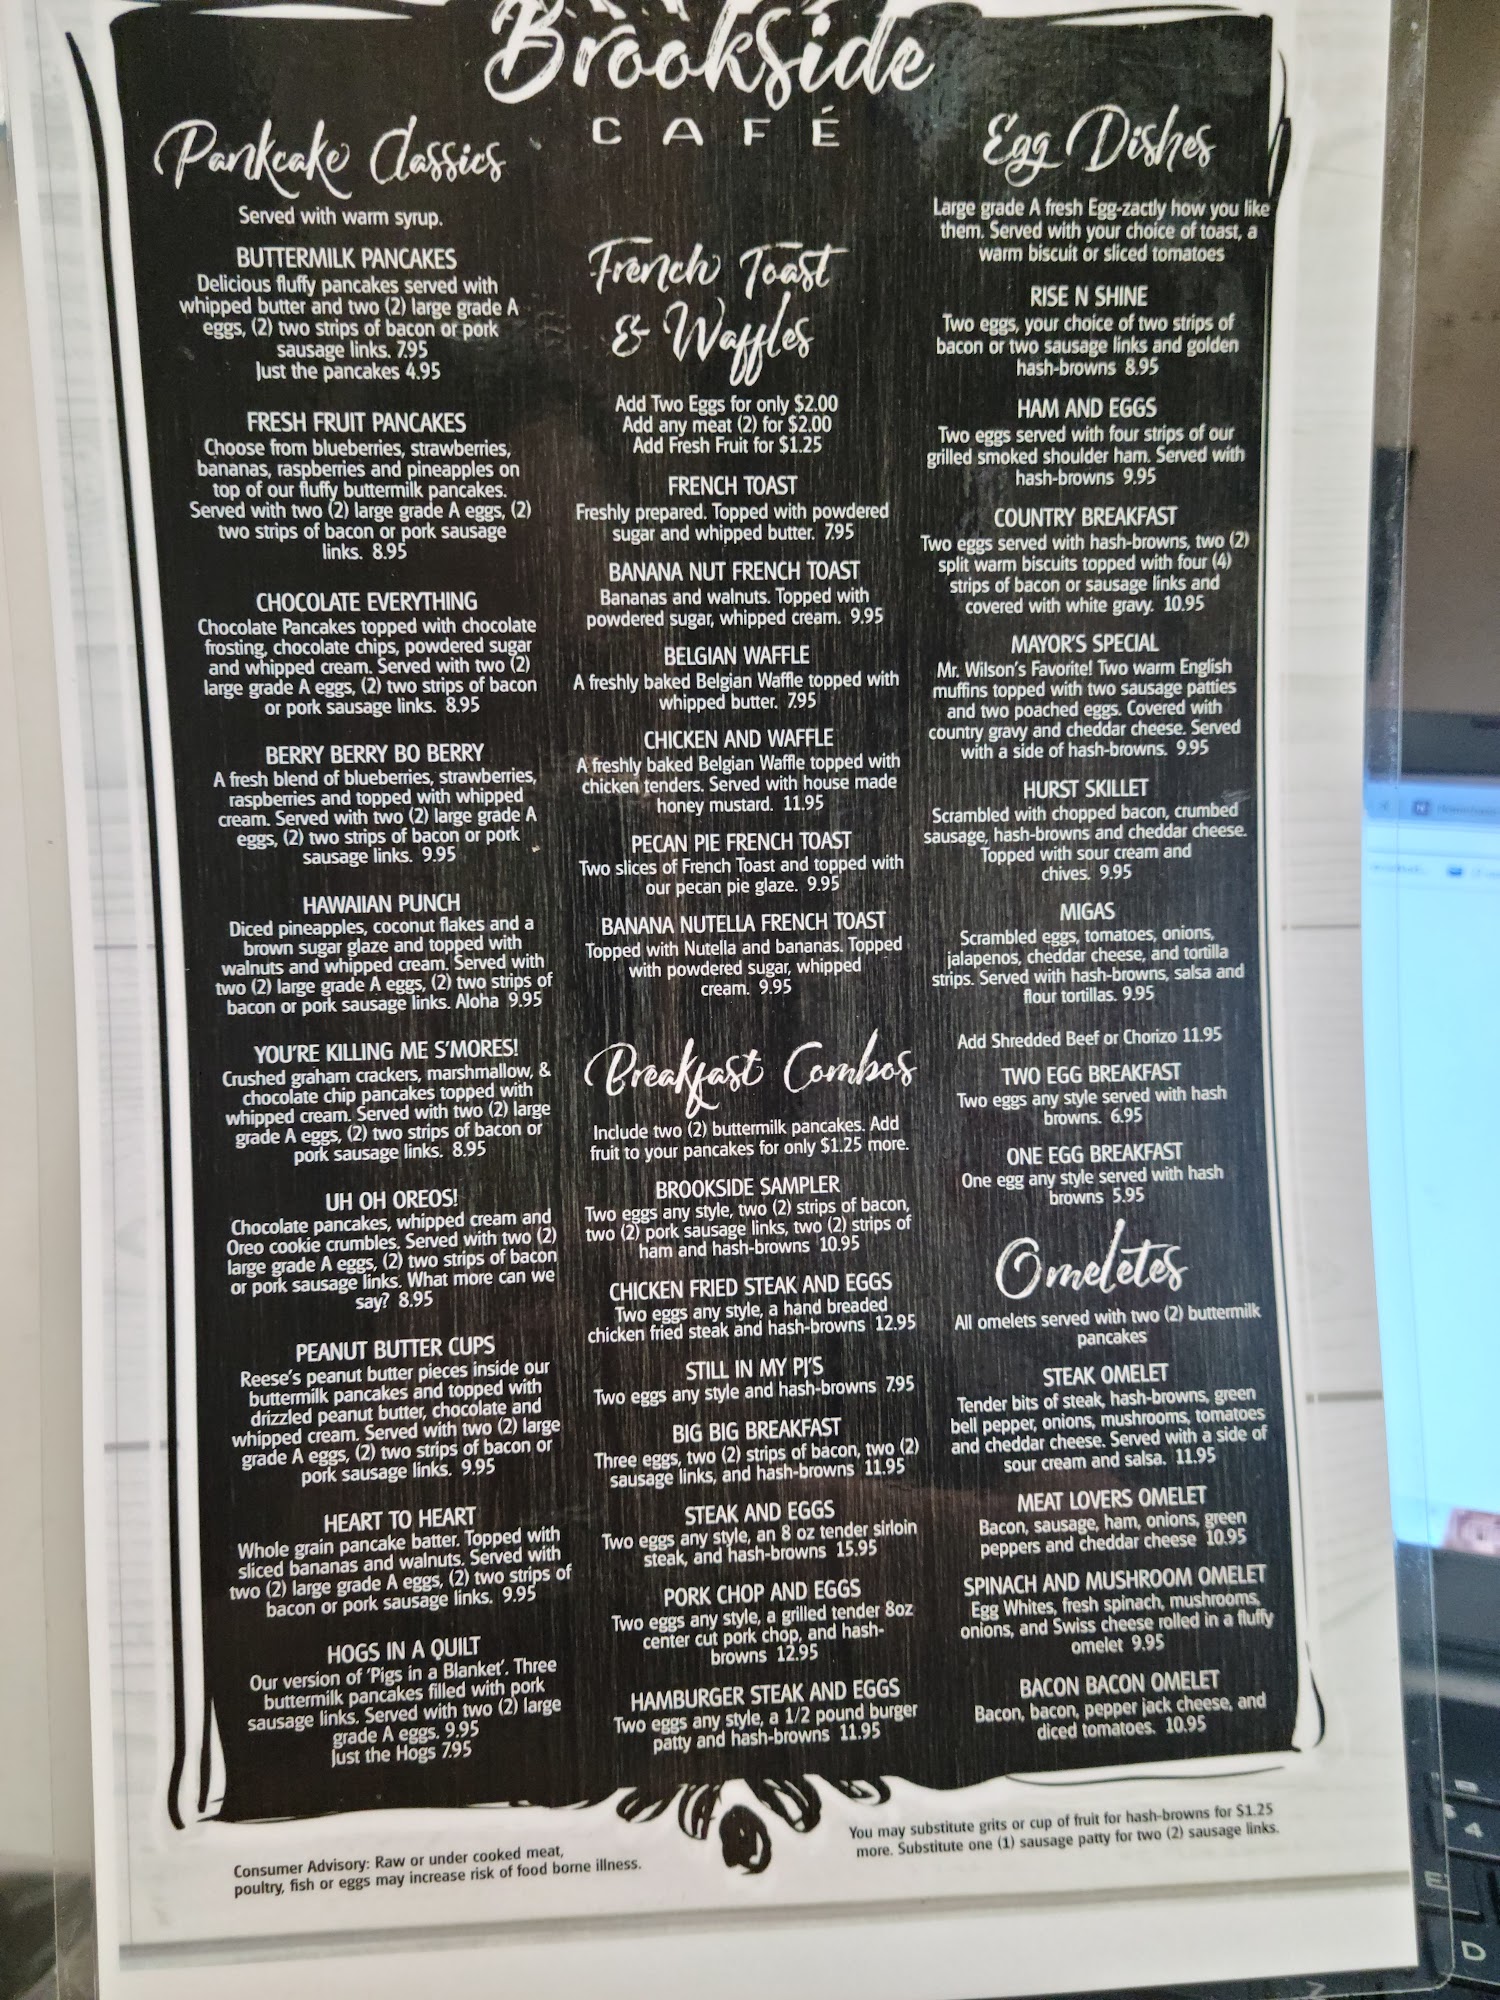 Brookside
CAFÉ
Pankcake Classics
Served with warm syrup.
BUTTERMILK PANCAKES
Delicious fluffy pancakes served with
whipped butter and two (2) large grade A
eggs, (2) two strips of bacon or pork
sausage links. 7.95
Just the pancakes 4.95
FRESH FRUIT PANCAKES
Choose from blueberries, strawberries,
bananas, raspberries and pineapples on
top of our fluffy buttermilk pancakes.
Served with two (2) large grade A eggs, (2)
two strips of bacon or pork sausage
links. 8.95
CHOCOLATE EVERYTHING
Chocolate Pancakes topped with chocolate
frosting, chocolate chips, powdered sugar
and whipped cream. Served with two (2)
large grade A eggs, (2) two strips of bacon
or pork sausage links. 8.95
BERRY BERRY BO BERRY
A fresh blend of blueberries, strawberries,
raspberries and topped with whipped
cream. Served with two (2) large grade A
eggs, (2) two strips of bacon or pork
sausage links. 9.95
HAWAIIAN PUNCH
Diced pineapples, coconut flakes and a
brown sugar glaze and topped with
walnuts and whipped cream. Served with
two (2) large grade A eggs, (2) two strips of
bacon or pork sausage links. Aloha 9.95
YOU'RE KILLING ME S'MORES!
Crushed graham crackers, marshmallow, &
chocolate chip pancakes topped with
whipped cream. Served with two (2) large
grade A eggs, (2) two strips of bacon or
pork sausage links. 8.95
UH OH OREOS!
Chocolate pancakes, whipped cream and
Oreo cookie crumbles. Served with two (2)
large grade A eggs, (2) two strips of bacon
or pork sausage links. What more can we
say? 8.95
PEANUT BUTTER CUPS
Reese's peanut butter pieces inside our
buttermilk pancakes and topped with
drizzled peanut butter, chocolate and
whipped cream. Served with two (2) large
grade A eggs, (2) two strips of bacon or
pork sausage links. 9.95
HEART TO HEART
Whole grain pancake batter. Topped with
sliced bananas and walnuts. Served with
two (2) large grade A eggs, (2) two strips of
bacon or pork sausage links. 9.95
HOGS IN A QUILT
Our version of 'Pigs in a Blanket'. Three
buttermilk pancakes filled with pork
sausage links. Served with two (2) large
grade A eggs. 9.95
Just the Hogs 7.95
French Toast
& Waffles
Add Two Eggs for only $2.00
Add any meat (2) for $2.00
Add Fresh Fruit for $1.25
FRENCH TOAST
Freshly prepared. Topped with powdered
sugar and whipped butter. 7.95
BANANA NUT FRENCH TOAST
Bananas and walnuts. Topped with
powdered sugar, whipped cream. 9.95
BELGIAN WAFFLE
A freshly baked Belgian Waffle topped with
whipped butter. 7.95
CHICKEN AND WAFFLE
A freshly baked Belgian Waffle topped with
chicken tenders. Served with house made
honey mustard. 11.95
PECAN PIE FRENCH TOAST
Two slices of French Toast and topped with
our pecan pie glaze. 9.95
BANANA NUTELLA FRENCH TOAST
Topped with Nutella and bananas. Topped
with powdered sugar, whipped
cream. 9.95
Breakfast Combos
Include two (2) buttermilk pancakes. Add
fruit to your pancakes for only $1.25 more.
BROOKSIDE SAMPLER
Two eggs any style, two (2) strips of bacon,
two (2) pork sausage links, two (2) strips of
ham and hash-browns 10.95
CHICKEN FRIED STEAK AND EGGS
Two eggs any style, a hand breaded
chicken fried steak and hash-browns 12.95
STILL IN MY PJ'S
Two eggs any style and hash-browns 7.95
BIG BIG BREAKFAST
Three eggs, two (2) strips of bacon, two (2)
sausage links, and hash-browns 11.95
STEAK AND EGGS
Two eggs any style, an 8 oz tender sirloin
steak, and hash-browns 15.95
PORK CHOP AND EGGS
Two eggs any style, a grilled tender 8oz
center cut pork chop, and hash-
browns 12.95
HAMBURGER STEAK AND EGGS
Two eggs any style, a 1/2 pound burger
patty and hash-browns 11.95
Egg Dishes
Large grade A fresh Egg-zactly how you like
them. Served with your choice of toast, a
warm biscuit or sliced tomatoes
RISE N SHINE
Two eggs, your choice of two strips of
bacon or two sausage links and golden
hash-browns 8.95
HAM AND EGGS
Two eggs served with four strips of our
grilled smoked shoulder ham. Served with
hash-browns 9.95
COUNTRY BREAKFAST
Two eggs served with hash-browns, two (2)
split warm biscuits topped with four (4)
strips of bacon or sausage links and
covered with white gravy. 10.95
MAYOR'S SPECIAL
Mr. Wilson's Favorite! Two warm English
muffins topped with two sausage patties
and two poached eggs. Covered with
country gravy and cheddar cheese. Served
with a side of hash-browns. 9.95
HURST SKILLET
Scrambled with chopped bacon, crumbed
sausage, hash-browns and cheddar cheese.
Topped with sour cream and
chives. 9.95
MIGAS
Scrambled eggs, tomatoes, onions,
jalapenos, cheddar cheese, and tortilla
strips. Served with hash-browns, salsa and
flour tortillas. 9.95
Add Shredded Beef or Chorizo 11.95
TWO EGG BREAKFAST
Two eggs any style served with hash
browns. 6.95
ONE EGG BREAKFAST
One egg any style served with hash
browns 5.95
Omeletes
All omelets served with two (2) buttermilk
pancakes
STEAK OMELET
Tender bits of steak, hash-browns, green
bell pepper, onions, mushrooms, tomatoes
and cheddar cheese. Served with a side of
sour cream and salsa. 11.95
MEAT LOVERS OMELET
Bacon, sausage, ham, onions, green
peppers and cheddar cheese 10.95
SPINACH AND MUSHROOM OMELET
Egg Whites, fresh spinach, mushrooms,
onions, and Swiss cheese rolled in a fluffy
omelet 9.95
BACON BACON OMELET
Bacon, bacon, pepper jack cheese, and
diced tomatoes. 10.95
Consumer Advisory: Raw or under cooked meat,
poultry, fish or eggs may increase risk of food borne illness.
You may substitute grits or cup of fruit for hash-browns for $1.25
more. Substitute one (1) sausage patty for two (2) sausage links.
4
E
D